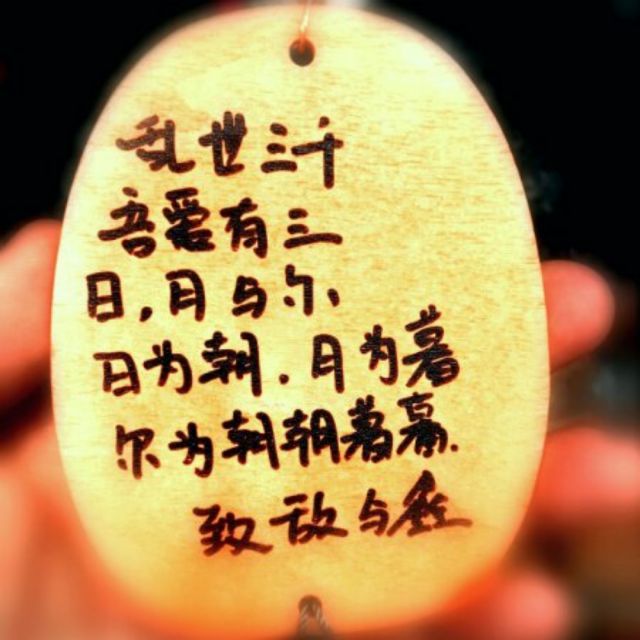 乱世三千
吾爱有三
日,月与尔
日为朝.月为暮
尔为朝朝暮暮.
致敌与